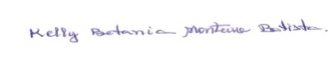 Kelly Betania Monteiro Batista.